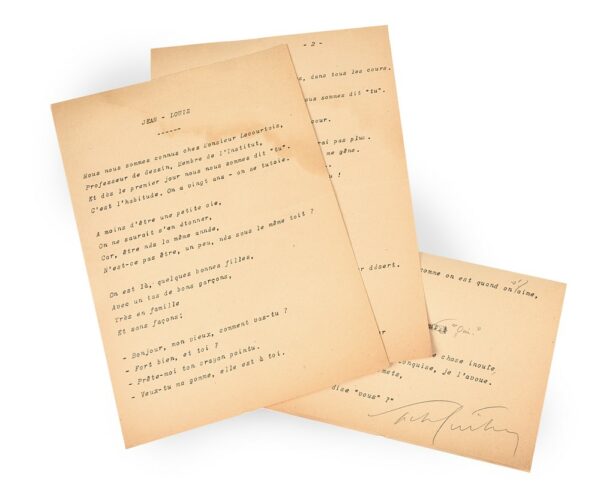 JEAN - LOUIS
------
Nous nous sommes connus chez Monsieur Lecourtois,
Professeur de dessin, Membre de l'Institut,
Et dès le premier jour nous nous sommes dit "tu".
C'est l'habitude. On a vingt ans - on se tutoie.
A moins d'être une petite oie,
On ne saurait s'en étonner,
Car, être nés la même année,
N'est-ce pas être, un peu, nés sous le même toit ?
On est là, quelques bonnes filles,
Avec un tas de bons garçons,
Très en famille
Et sans façons:
- Bonjour, mon vieux, comment vas-tu ?
- Fort bien, et toi ?
- Prête-moi ton crayon pointu.
- Veux-tu ma gomme, elle est à toi.
- 2 -
, dans tous les cours.
nous sommes dit "tu".
our.
rai pas plus.
me gêne.
!
r désert.
comme on est quand on aime,
"Oui."
chose inouïe
onquise, je l'avoue.
mets,
dise "vous" ?"